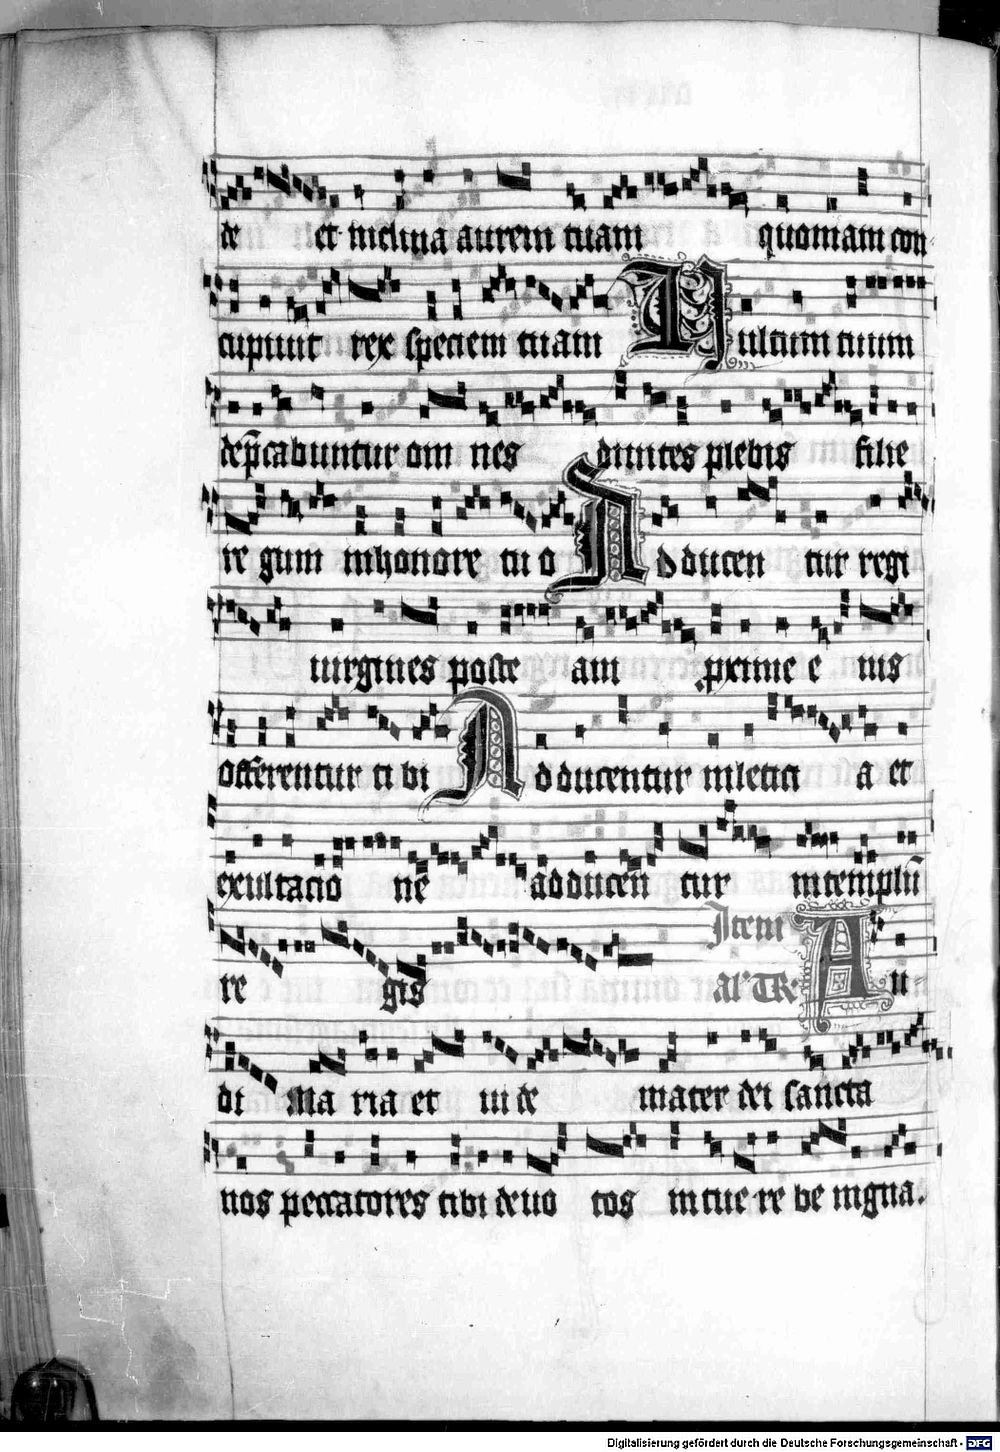 de et inclina aurem tuam quoniam con-
cupiuit rex speciem tuam Vultum tuum
dep̄cabuntur om nes diuites plebis filie
re gum inhonore tu o Adducen tur regi
uirgines poste am proxime e ius
offerentur ti bi Adducentur inletici a et
exultacio nē adducen tur intemplū
re gis Item al' TR Au
di Ma ria et ui de mater dei sancta
nos peccatores tibi deuo tos intue re be nigna.
Digitalisierung gefördert durch die Deutsche Forschungsgemeinschaft - DFG